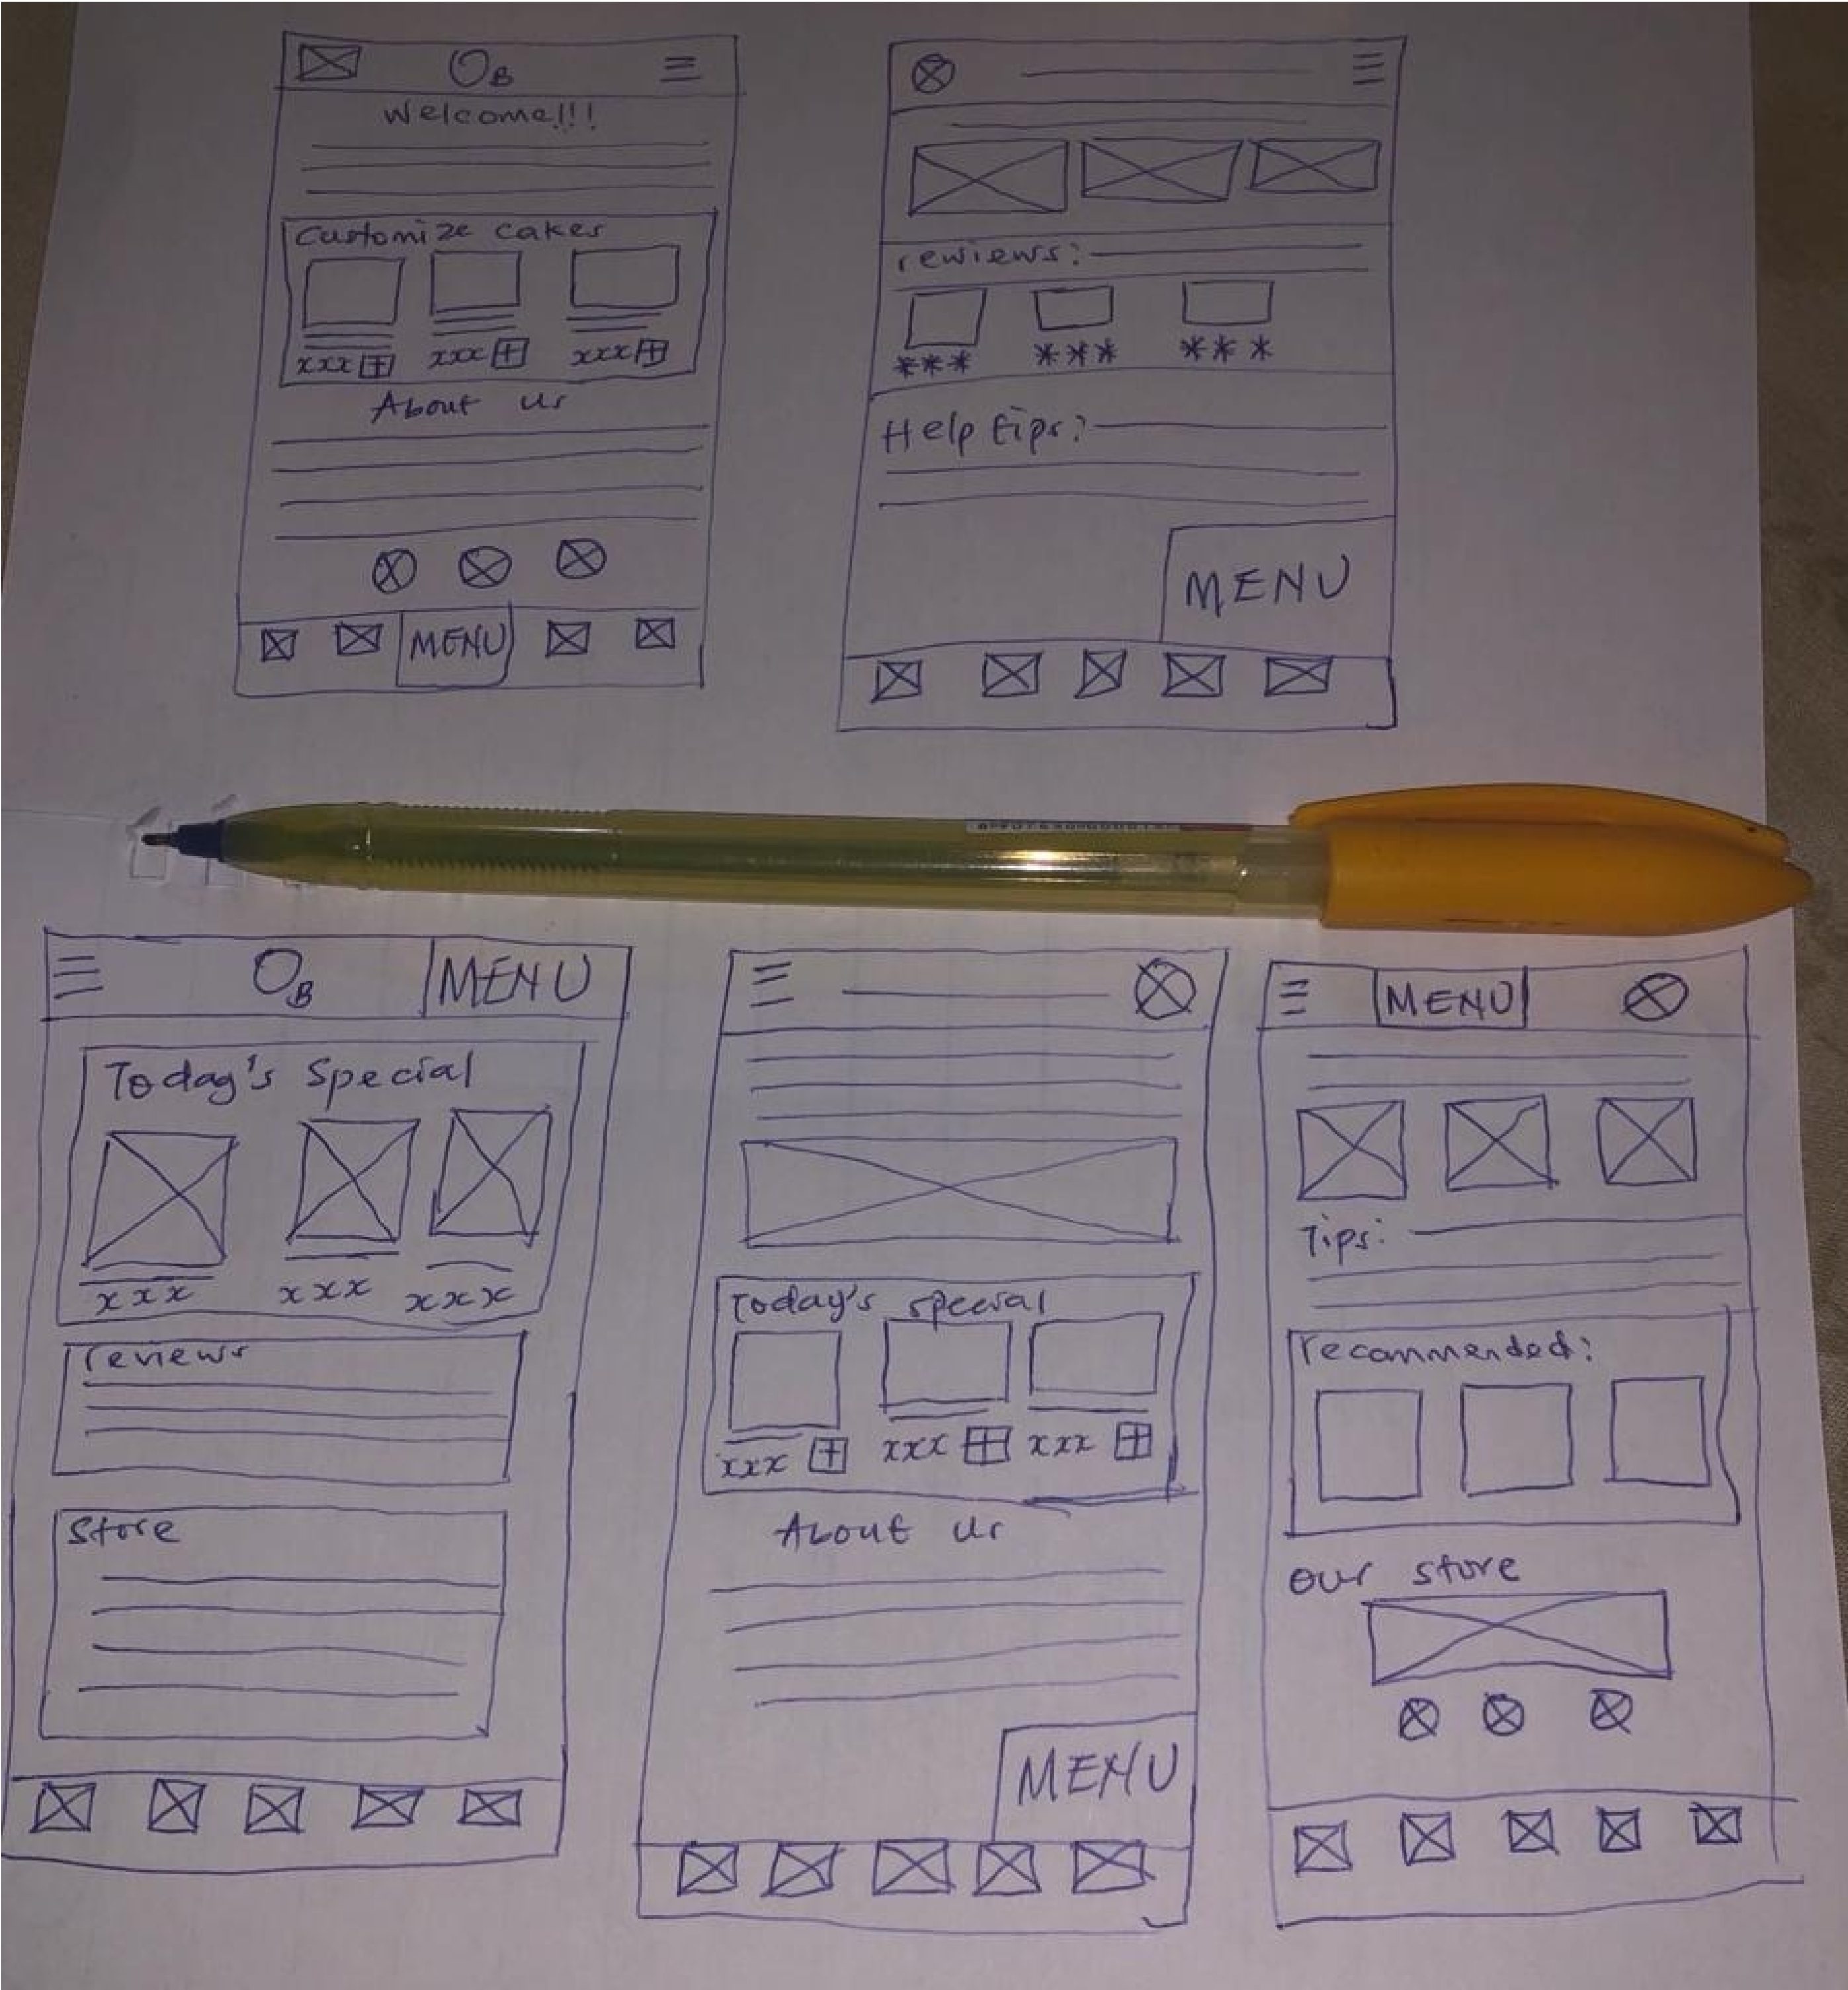 OB
Welcome!!!
Customize cakes
xxx xxx xxx
About us
MENU
rewiews:
*** *** ***
Help tips:
MENU
OB MENU
Today's Special
xxx xxx xxx
reviews
Store
Today's special
xxx xxx xxx
About us
MENU
MENU
Tips:
recommended:
our store